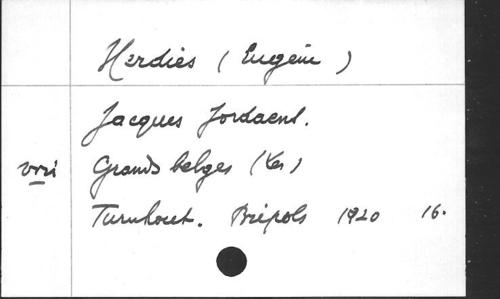 Herdies (Eugène)
Jacques Jordaens.
Grands belges (Les)
Turnhout. Brépols 1920 16.